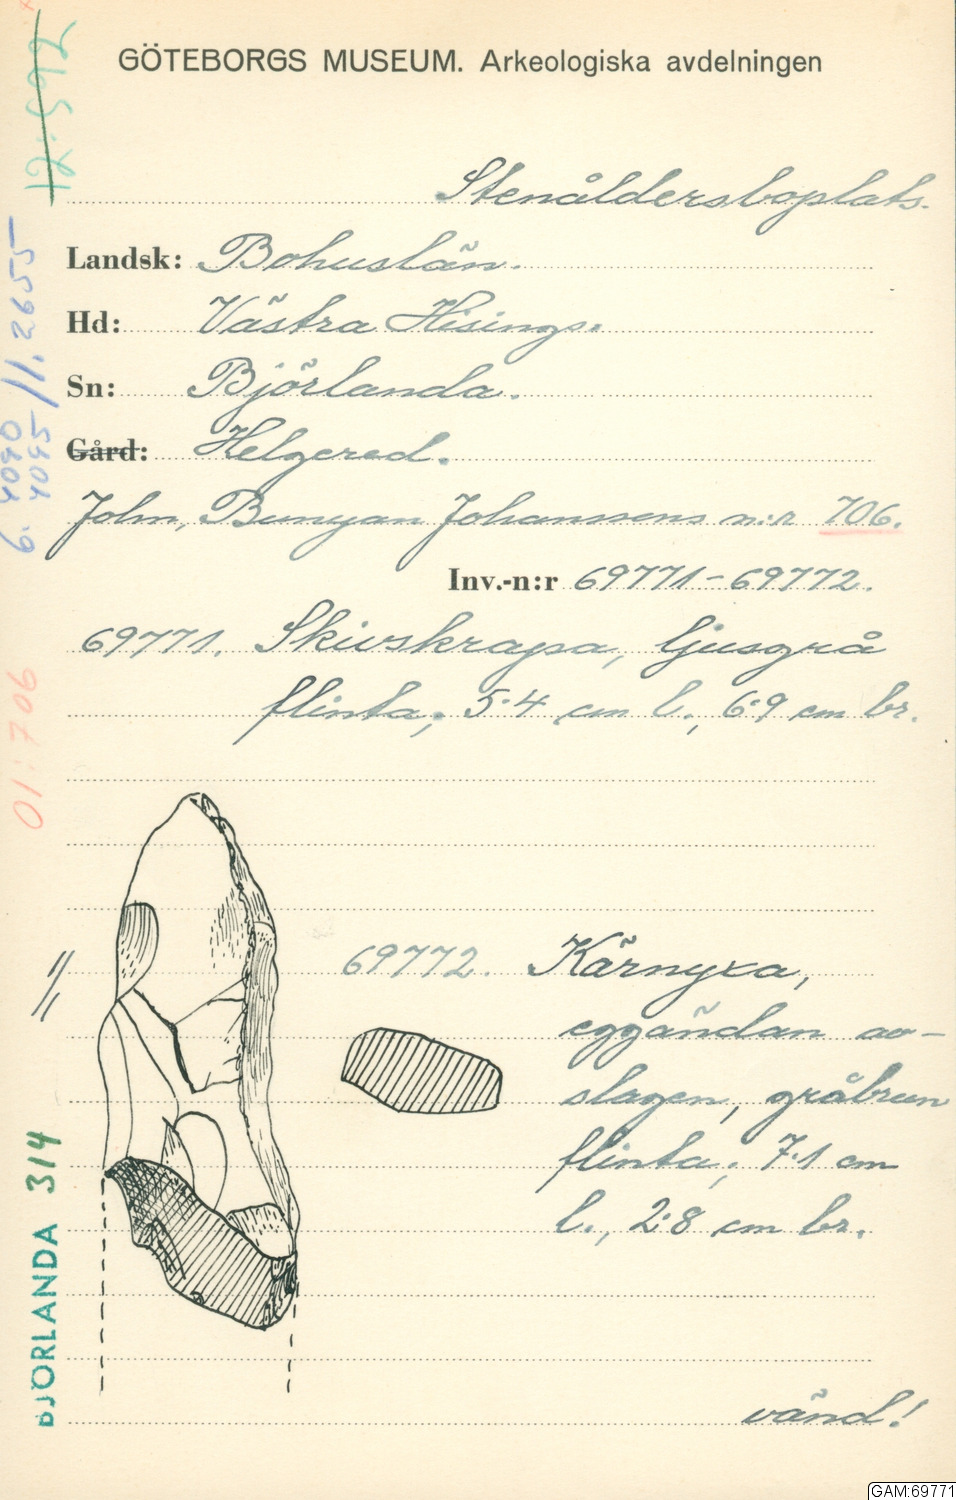 GÖTEBORGS MUSEUM. Arkeologiska avdelningen
Stenåldersboplats.
Landsk: Bohuslän.
Hd: Västra Hisings.
Sn: Björlanda.
Gård: Helgered.
John, Bunyan Johanssons n:r 706.
Inv.-n:r 69771-69772.
69771. Skivskrapa, ljusgrå
flinta; 5·4 cm l., 6·9 cm br.
69772. Kärnyxa,
eggändan av-
slagen, gråbrun
flinta; 7·1 cm
l., 2·8 cm br.
vänd!
12:592
6. 4090
4095 //. 2655
01:706
BJÖRLANDA 314
GAM:69771